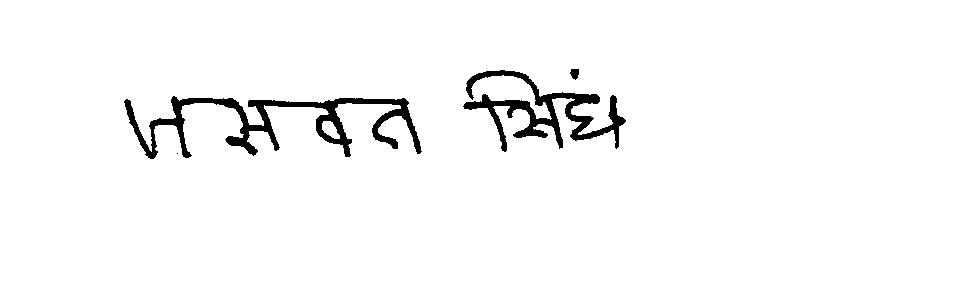 जसवत सिंघ